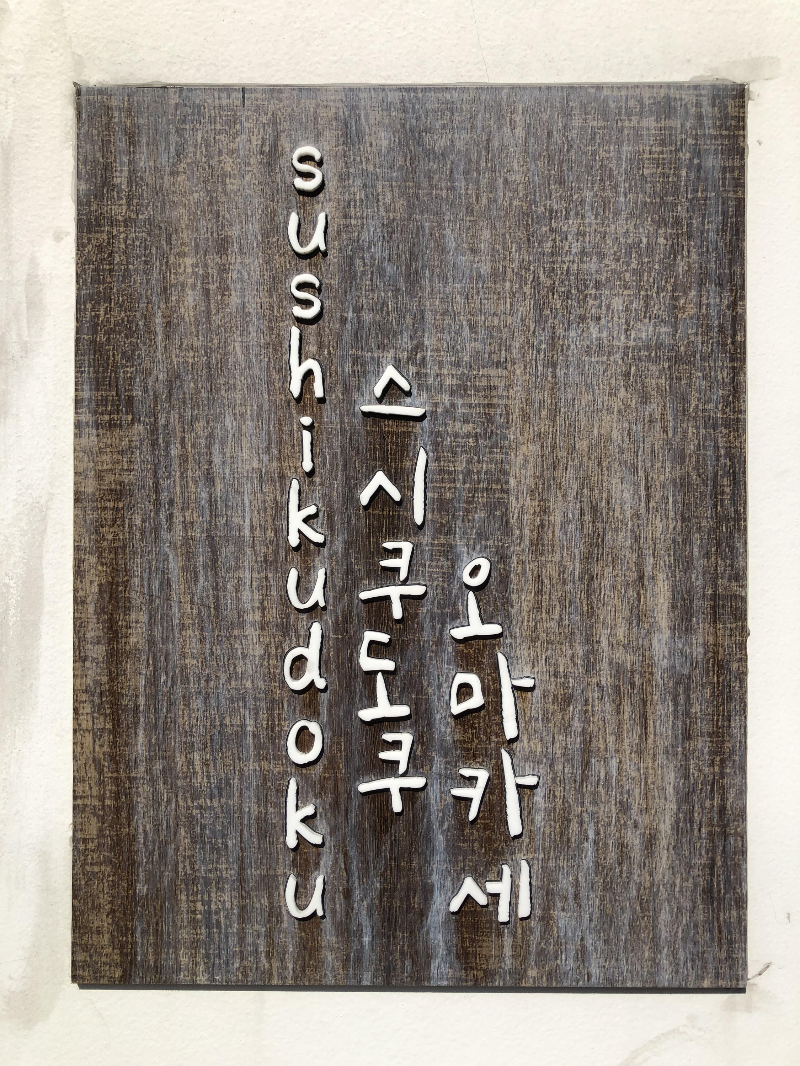 sushikudoku
스시쿠도쿠
오마카세